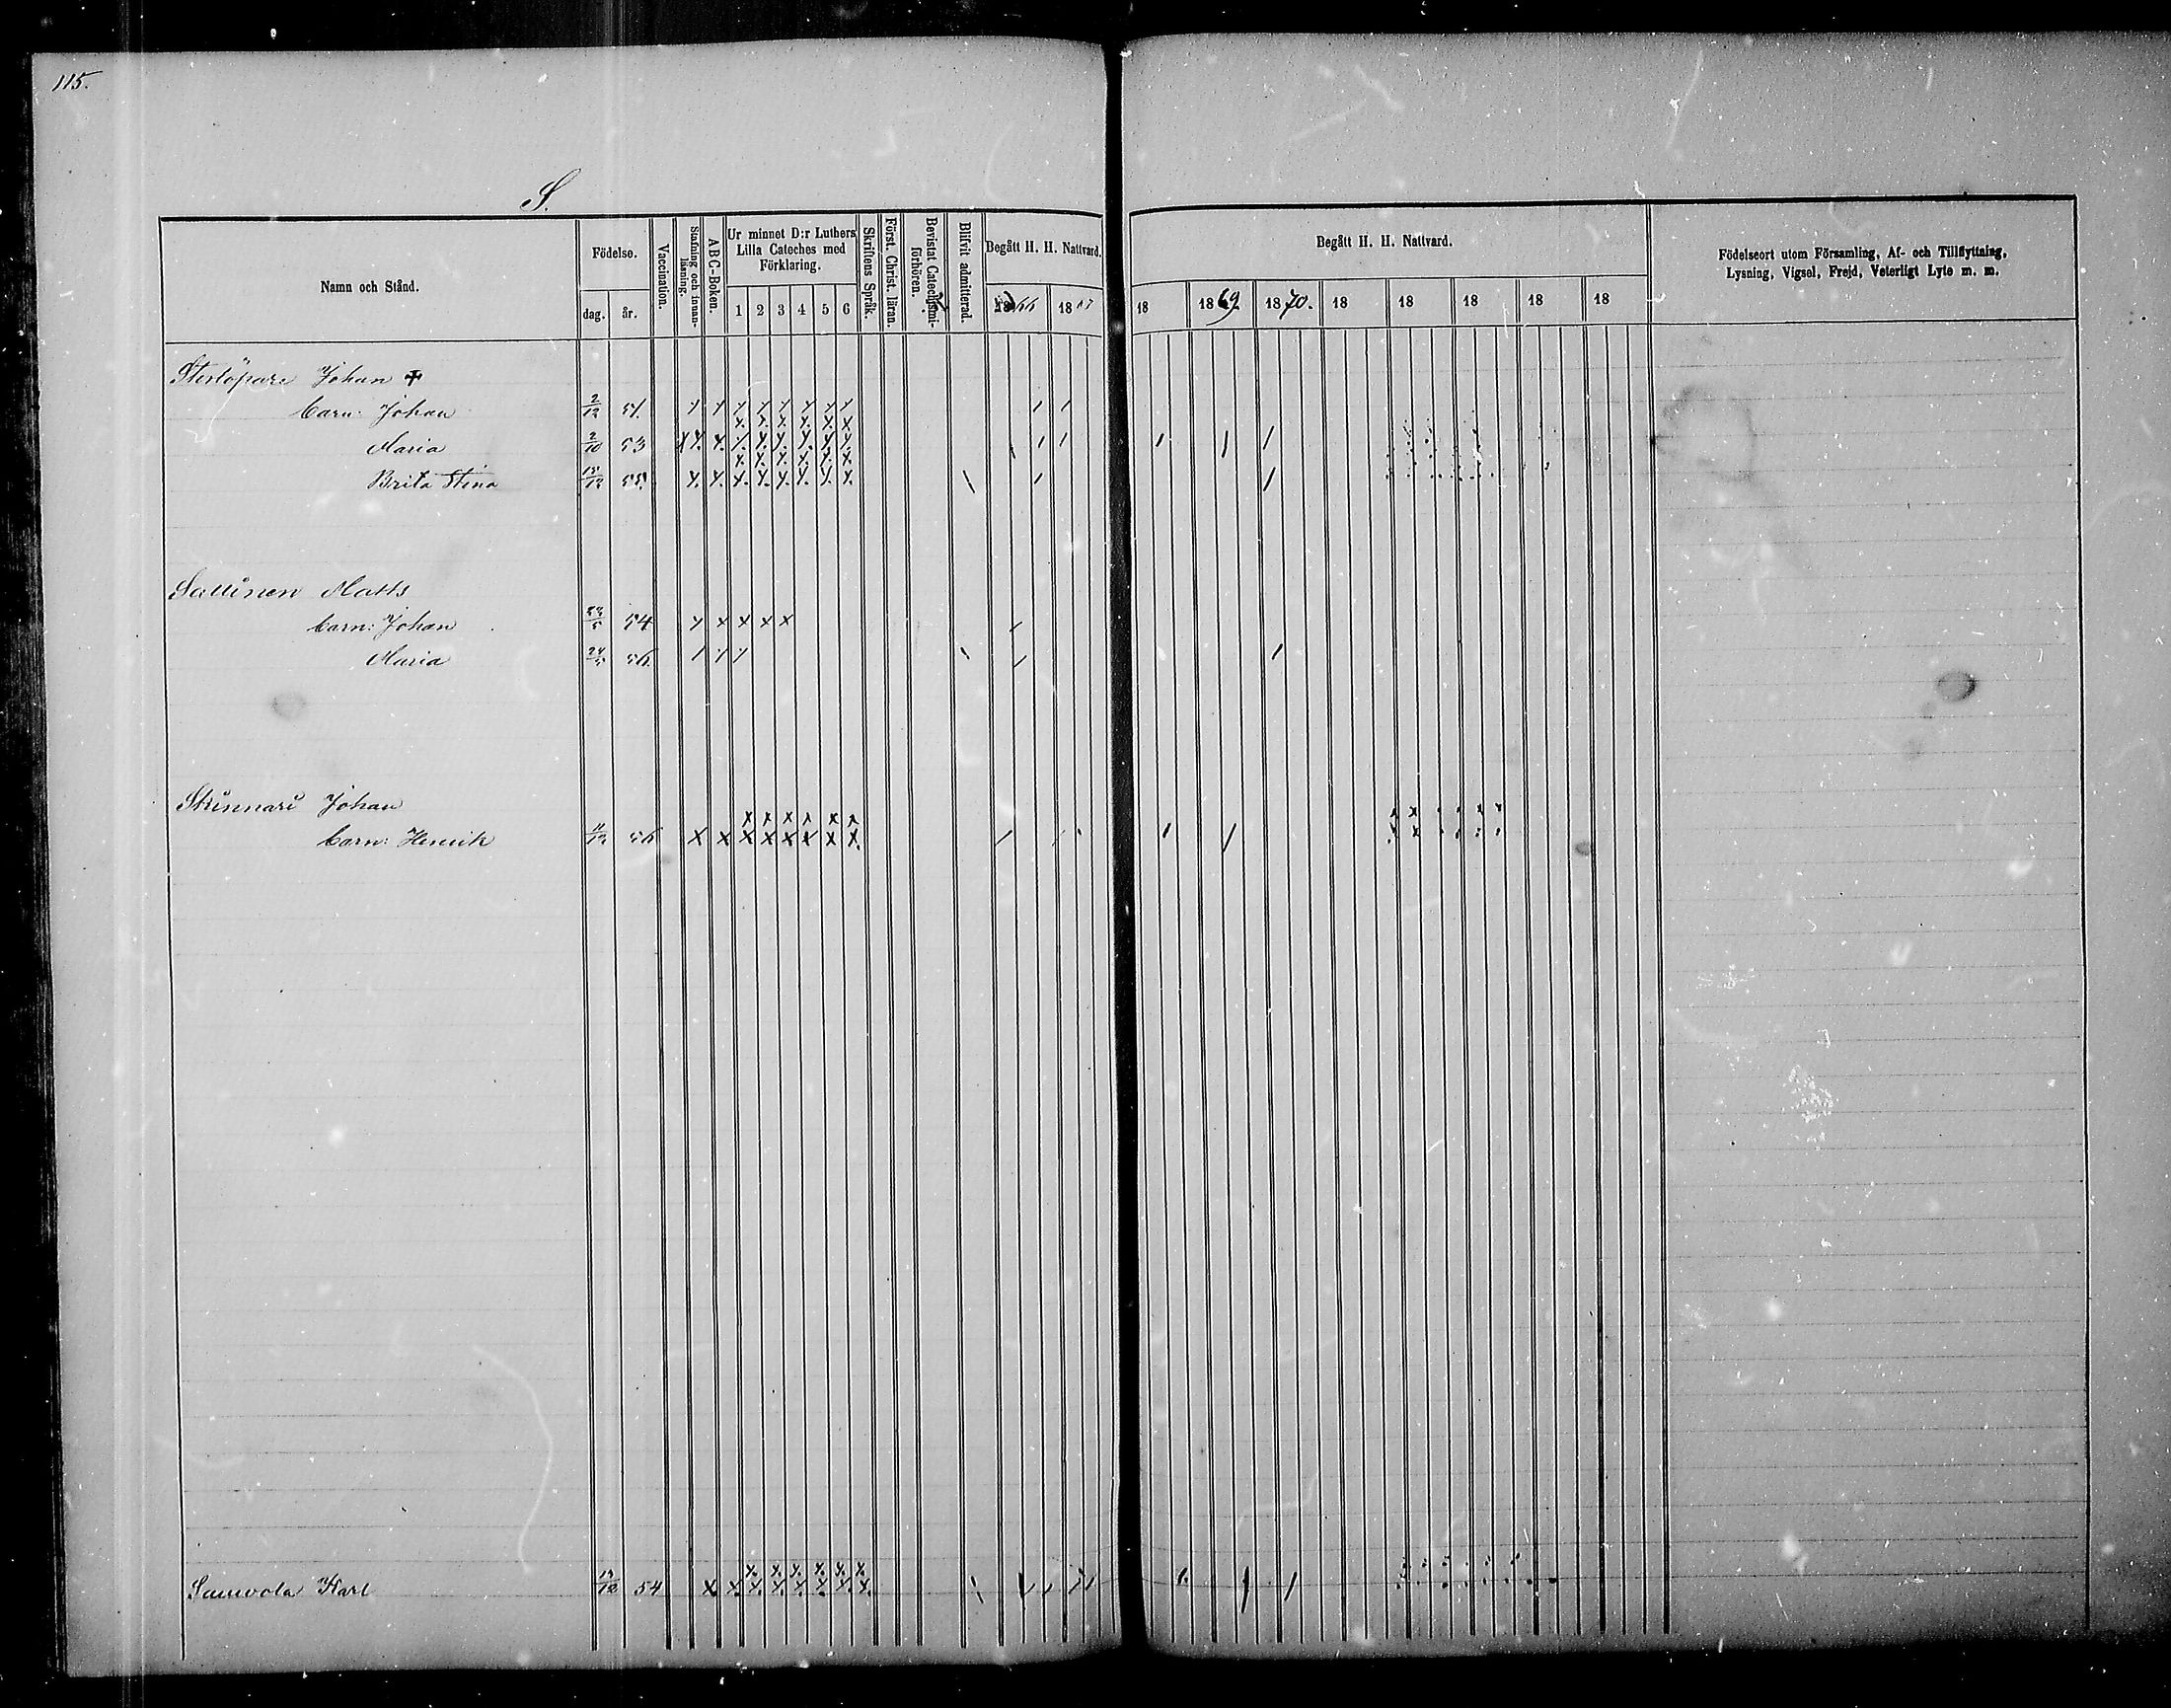 115.
S.
Namn och Stånd.
Födelse.
dag.
år.
Vaccination.
Stafning och innanläsning.
ABC-Boken.
Ur minnet D:r Luthers Lilla Cateches med Förklaring.
1 2 3 4 5 6
Skriftens Språk.
Först. Christ. läran.
Bevistat Catechismiförhören.
Blifvit admitterad.
Begått H. H. Nattvard.
1866 1867
Begått H. H. Nattvard.
18 1869. 1870. 18 18 18 18 18
Födelseort utom Församling, Af- och Tillflyttning,
Lysning, Vigsel, Frejd, Veterligt Lyte m. m.
Johan
Barn: Johan 2/12 51.
Maria 2/10 53
Brita Stina 55.
Sallinen Matts
Barn: Johan 54
Maria 56
Skinnari Johan
Barn: Henrik 11/12 56
Karl 54